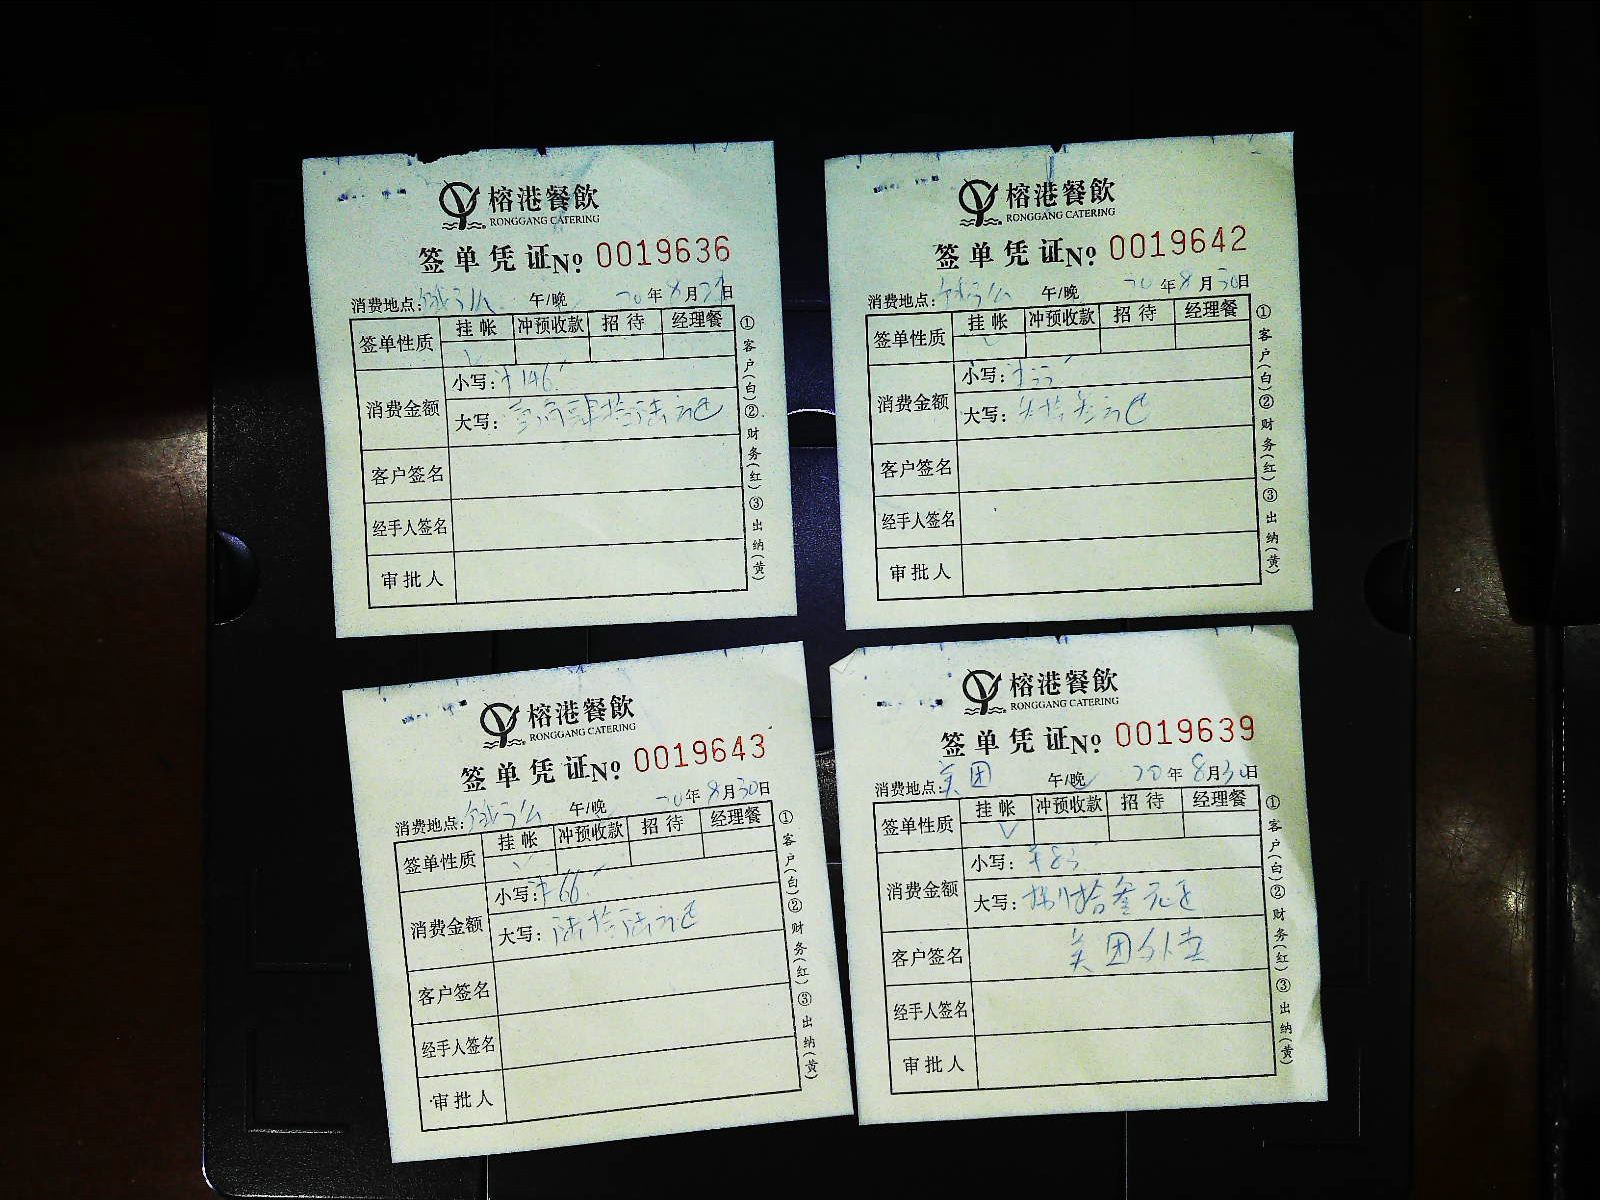 榕港餐飲
RONGGANG CATERING
签单凭证№ 0019636
消费地点: 午/晚 20年8月日
签单性质 挂帐 冲预收款 招待 经理餐
✓
消费金额
小写:¥146.
大写:壹佰肆拾陆元
客户签名
经手人签名
审批人
①客户(白)②财务(红)③出纳(黄)
榕港餐飲
RONGGANG CATERING
签单凭证№ 0019642
消费地点: 午/晚 20年8月30日
签单性质 挂帐 冲预收款 招待 经理餐
✓
消费金额
小写:¥
大写:
客户签名
经手人签名
审批人
①客户(白)②财务(红)③出纳(黄)
榕港餐飲
RONGGANG CATERING
签单凭证№ 0019643
消费地点: 午/晚 20年8月30日
签单性质 挂帐 冲预收款 招待 经理餐
✓
消费金额
小写:¥66.
大写:陆拾陆元
客户签名
经手人签名
审批人
①客户(白)②财务(红)③出纳(黄)
榕港餐飲
RONGGANG CATERING
签单凭证№ 0019639
消费地点:美团 午/晚 20年8月30日
签单性质 挂帐 冲预收款 招待 经理餐
✓
消费金额
小写:¥83
大写:捌拾叁元正
客户签名 美团外卖
经手人签名
审批人
①客户(白)②财务(红)③出纳(黄)